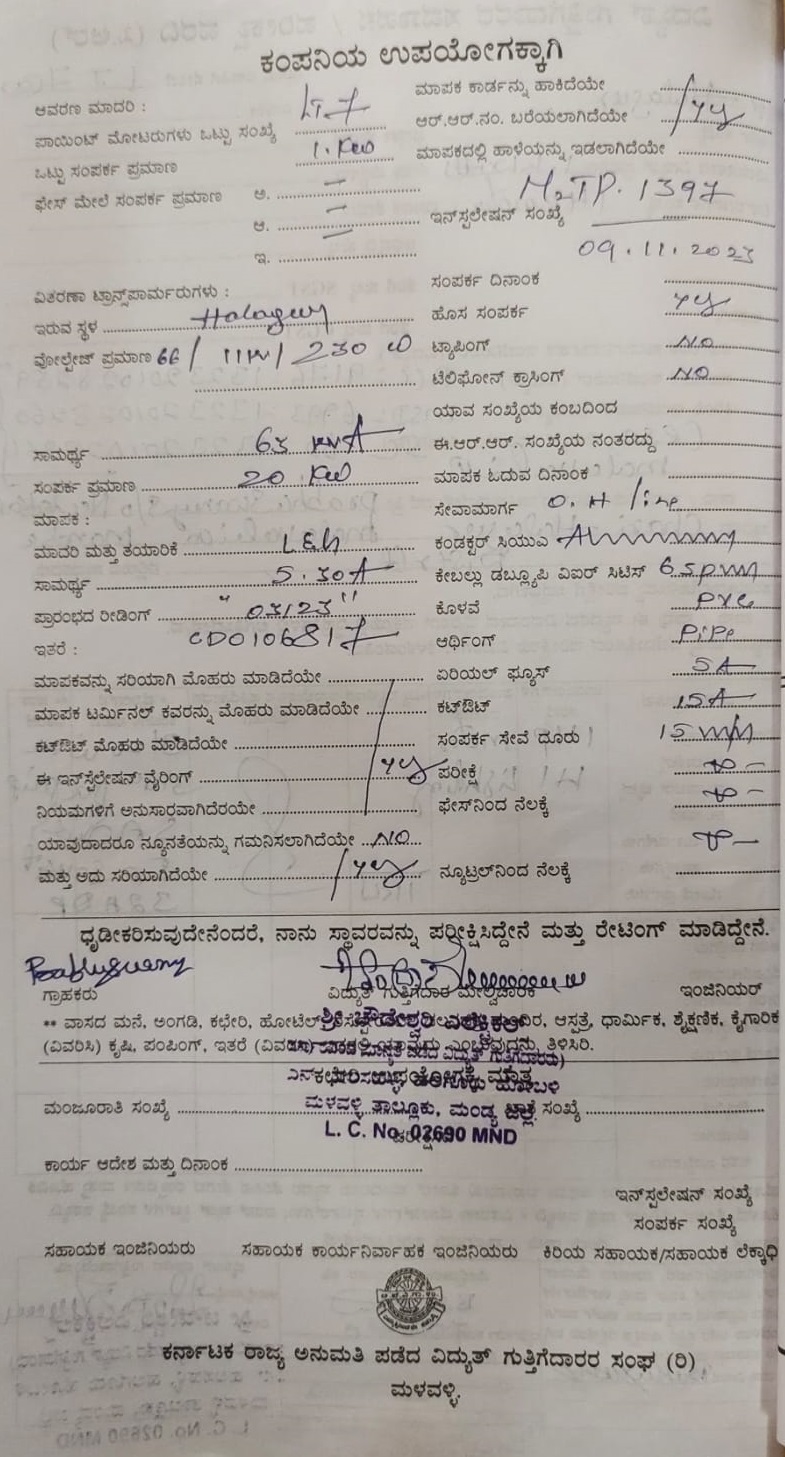 ಕಂಪನಿಯ ಉಪಯೋಗಕ್ಕಾಗಿ
ಆವರಣ ಮಾದರಿ : LT-7
ಪಾಯಿಂಟ್ ಮೋಟರುಗಳು ಒಟ್ಟು ಸಂಖ್ಯೆ
ಒಟ್ಟು ಸಂಪರ್ಕ ಪ್ರಮಾಣ 1. KW
ಫೇಸ್ ಮೇಲೆ ಸಂಪರ್ಕ ಪ್ರಮಾಣ ಅ. –
ಆ. –
ಇ. –
ಮಾಪಕ ಕಾರ್ಡನ್ನು ಹಾಕಿದೆಯೇ
ಆರ್.ಆರ್.ನಂ. ಬರೆಯಲಾಗಿದೆಯೇ
ಮಾಪಕದಲ್ಲಿ ಹಾಳೆಯನ್ನು ಇಡಲಾಗಿದೆಯೇ
M2TP. 1397
ಇನ್‌ಸ್ಟಲೇಷನ್ ಸಂಖ್ಯೆ
09.11.2023
ವಿತರಣಾ ಟ್ರಾನ್ಸ್‌ಪಾರ್ಮರುಗಳು :
ಇರುವ ಸ್ಥಳ
ವೋಲ್ಟೇಜ್ ಪ್ರಮಾಣ 66 / 11KV / 230
ಸಾಮರ್ಥ್ಯ 63 KVA
ಸಂಪರ್ಕ ಪ್ರಮಾಣ 20 KW
ಮಾಪಕ :
ಮಾದರಿ ಮತ್ತು ತಯಾರಿಕೆ L&G
ಸಾಮರ್ಥ್ಯ 5.30A
ಪ್ರಾರಂಭದ ರೀಡಿಂಗ್ "03/23"
ಇತರೆ : CD0106817
ಮಾಪಕವನ್ನು ಸರಿಯಾಗಿ ಮೊಹರು ಮಾಡಿದೆಯೇ
ಮಾಪಕ ಟರ್ಮಿನಲ್ ಕವರನ್ನು ಮೊಹರು ಮಾಡಿದೆಯೇ
ಕಟ್‌ಔಟ್ ಮೊಹರು ಮಾಡಿದೆಯೇ
ಈ ಇನ್‌ಸ್ಟೆಲೇಷನ್ ವೈರಿಂಗ್
ನಿಯಮಗಳಿಗೆ ಅನುಸಾರವಾಗಿದೆರಯೇ
ಯಾವುದಾದರೂ ನ್ಯೂನತೆಯನ್ನು ಗಮನಿಸಲಾಗಿದೆಯೇ NO
ಮತ್ತು ಅದು ಸರಿಯಾಗಿದೆಯೇ
ಸಂಪರ್ಕ ದಿನಾಂಕ
ಹೊಸ ಸಂಪರ್ಕ
ಟ್ಯಾಪಿಂಗ್ NO
ಟೆಲಿಫೋನ್ ಕ್ರಾಸಿಂಗ್ NO
ಯಾವ ಸಂಖ್ಯೆಯ ಕಂಬದಿಂದ
ಈ.ಆರ್.ಆರ್. ಸಂಖ್ಯೆಯ ನಂತರದ್ದು
ಮಾಪಕ ಓದುವ ದಿನಾಂಕ
ಸೇವಾಮಾರ್ಗ O. H line
ಕಂಡಕ್ಟರ್ ಸಿಯುವಿ
ಕೇಬಲ್ಲು ಡಬ್ಲ್ಯೂಪಿ ವಿಐರ್ ಸಿಟಿಸ್
ಕೊಳವೆ PVC
ಆರ್ಥಿಂಗ್ Pipe
ಏರಿಯಲ್ ಫ್ಯೂಸ್ 5A
ಕಟ್‌ಔಟ್ 15A
ಸಂಪರ್ಕ ಸೇವೆ ದೂರು
ಪರೀಕ್ಷೆ
ಫೇಸ್‌ನಿಂದ ನೆಲಕ್ಕೆ
ನ್ಯೂಟ್ರಲ್‌ನಿಂದ ನೆಲಕ್ಕೆ
ಧೃಡೀಕರಿಸುವುದೇನೆಂದರೆ, ನಾನು ಸ್ಥಾವರವನ್ನು ಪರೀಕ್ಷಿಸಿದ್ದೇನೆ ಮತ್ತು ರೇಟಿಂಗ್ ಮಾಡಿದ್ದೇನೆ.
ಗ್ರಾಹಕರು ವಿದ್ಯುತ್ ಗುತ್ತಿಗೆದಾರ ಮೇಲ್ವಿಚಾರಕ ಇಂಜಿನಿಯರ್
** ವಾಸದ ಮನೆ, ಅಂಗಡಿ, ಕಛೇರಿ, ಹೋಟೆಲ್ ಆಸ್ಪತ್ರೆ, ಧಾರ್ಮಿಕ, ಶೈಕ್ಷಣಿಕ, ಕೈಗಾರಿಕ
(ವಿವರಿಸಿ) ಕೃಷಿ, ಪಂಪಿಂಗ್, ಇತರೆ ತಿಳಿಸಿರಿ.
ಮಂಜೂರಾತಿ ಸಂಖ್ಯೆ ಸಂಖ್ಯೆ
ಮಳವಳ್ಳಿ ತಾಲ್ಲೂಕು, ಮಂಡ್ಯ ಜಿಲ್ಲೆ
L. C. No. 02690 MND
ಕಾರ್ಯ ಆದೇಶ ಮತ್ತು ದಿನಾಂಕ
ಇನ್‌ಸ್ಟಲೇಷನ್ ಸಂಖ್ಯೆ
ಸಂಪರ್ಕ ಸಂಖ್ಯೆ
ಸಹಾಯಕ ಇಂಜಿನಿಯರು ಸಹಾಯಕ ಕಾರ್ಯನಿರ್ವಾಹಕ ಇಂಜಿನಿಯರು ಕಿರಿಯ ಸಹಾಯಕ/ಸಹಾಯಕ ಲೆಕ್ಕಾಧಿ
ಕರ್ನಾಟಕ ರಾಜ್ಯ ಅನುಮತಿ ಪಡೆದ ವಿದ್ಯುತ್ ಗುತ್ತಿಗೆದಾರರ ಸಂಘ (ರಿ)
ಮಳವಳ್ಳಿ.